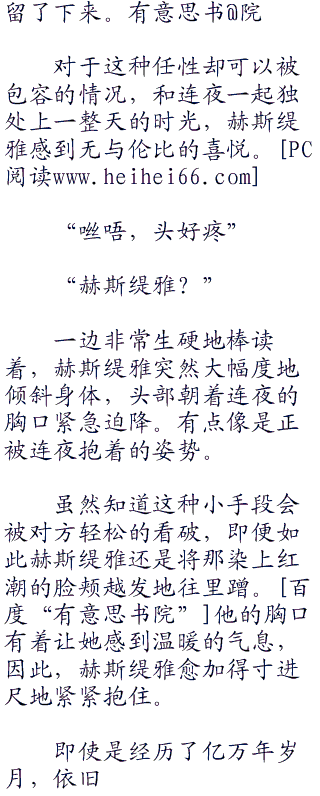 留了下来。有意思书@院
对于这种任性却可以被
包容的情况，和连夜一起独
处上一整天的时光，赫斯缇
雅感到无与伦比的喜悦。[PC
阅读www.heihei66.com]
“咝唔，头好疼”
“赫斯缇雅？”
一边非常生硬地棒读
着，赫斯缇雅突然大幅度地
倾斜身体，头部朝着连夜的
胸口紧急迫降。有点像是正
被连夜抱着的姿势。
虽然知道这种小手段会
被对方轻松的看破，即便如
此赫斯缇雅还是将那染上红
潮的脸颊越发地往里蹭。[百
度“有意思书院”]他的胸口
有着让她感到温暖的气息，
因此，赫斯缇雅愈加得寸进
尺地紧紧抱住。
即使是经历了亿万年岁
月，依旧